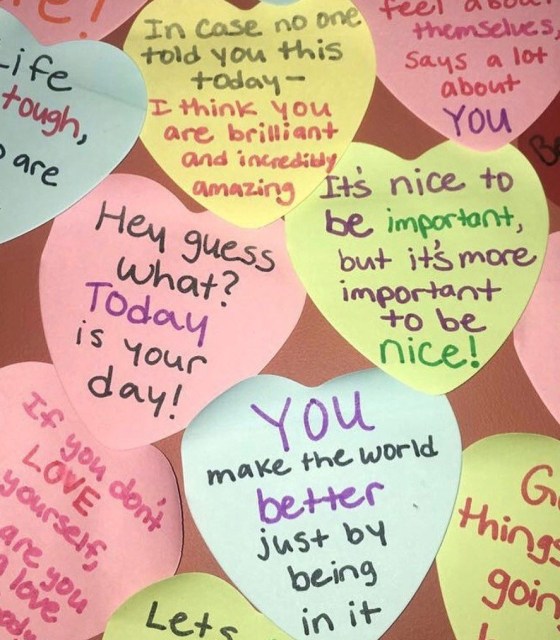 In case no one
told you this
today-
I think you
are brilliant
and incredibly
amazing
feel
themselves,
says a lot
about
YOU
Life
tough,
are
It's nice to
be important,
but it's more
important
to be
nice!
Hey guess
what?
Today
is your
day!
If you don't
LOVE
yourself,
are you
love
YOU
make the world
better
just by
being
in it
things
Lets